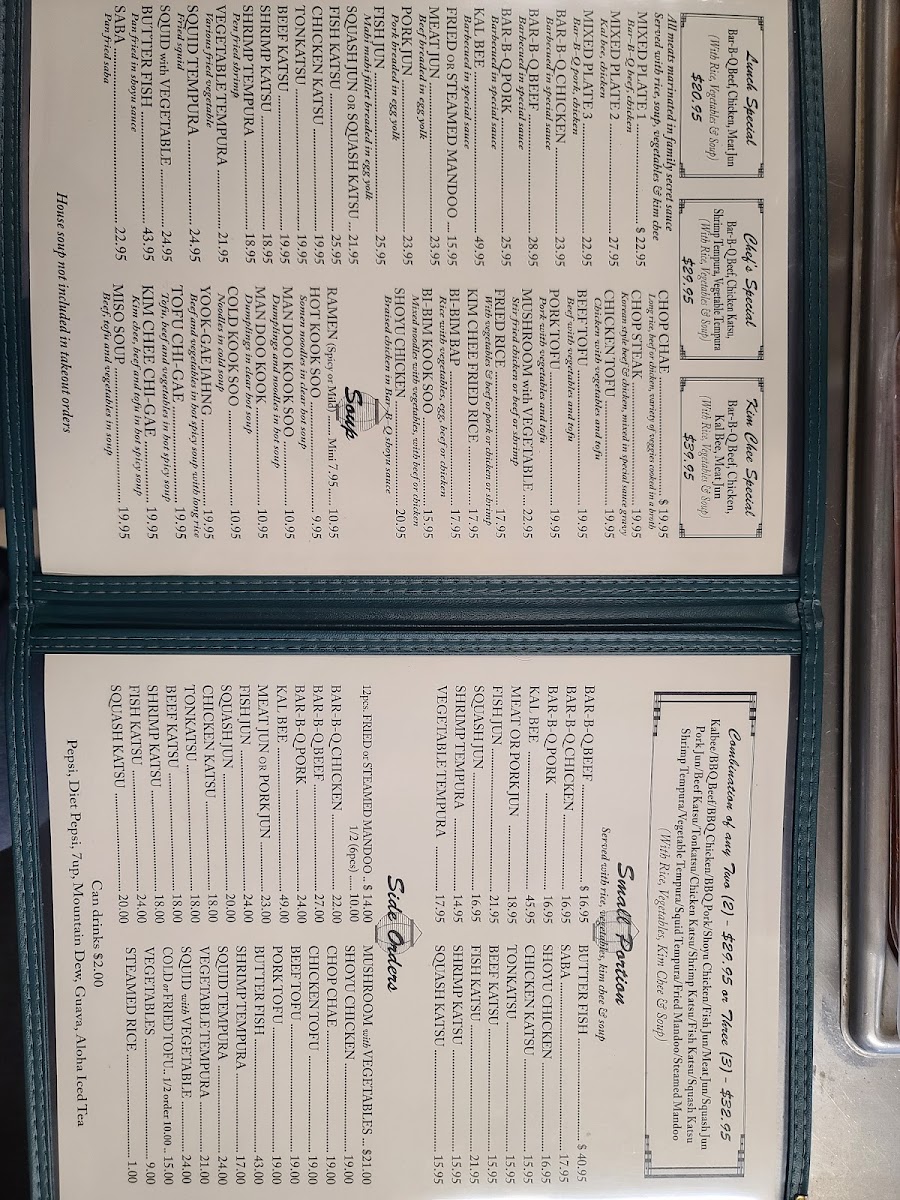 Lunch Special
Bar-B-Q Beef, Chicken, Meat Jun
(With Rice, Vegetables & Soup)
$20.95
Chef's Special
Bar-B-Q Beef, Chicken Katsu,
Shrimp Tempura, Vegetable Tempura
(With Rice, Vegetables & Soup)
$29.95
Kim Chee Special
Bar-B-Q Beef, Chicken,
Kal Bee, Meat Jun
(With Rice, Vegetables & Soup)
$39.95
All meats marinated in family secret sauce
Served with rice, soup, vegetables & kim chee
MIXED PLATE 1 ........ $ 22.95
Bar-B-Q beef, chicken
MIXED PLATE 2 ........ 27.95
Kal bee, chicken
MIXED PLATE 3 ........ 22.95
Bar-B-Q pork, chicken
BAR-B-Q CHICKEN ........ 23.95
Barbecued in special sauce
BAR-B-Q BEEF ........ 28.95
Barbecued in special sauce
BAR-B-Q PORK ........ 25.95
Barbecued in special sauce
KAL BEE ........ 49.95
Barbecued in special sauce
FRIED OR STEAMED MANDOO ... 15.95
MEAT JUN ........ 23.95
Beef breaded in egg yolk
PORK JUN ........ 23.95
Pork breaded in egg yolk
FISH JUN ........ 25.95
Mahi mahi fillet breaded in egg yolk
SQUASH JUN OR SQUASH KATSU ... 21.95
FISH KATSU ........ 25.95
CHICKEN KATSU ........ 19.95
TONKATSU ........ 19.95
BEEF KATSU ........ 19.95
SHRIMP KATSU ........ 18.95
SHRIMP TEMPURA ........ 18.95
Pan fried shrimp
VEGETABLE TEMPURA ........ 21.95
Various fried vegetable
SQUID TEMPURA ........ 24.95
Fried squid
SQUID with VEGETABLE ........ 24.95
BUTTER FISH ........ 43.95
Pan fried in shoyu sauce
SABA ........ 22.95
Pan fried saba
CHOP CHAE ........ $ 19.95
Long rice, beef or chicken, variety of veggies cooked in broth
CHOP STEAK ........ 19.95
Korean style beef & chicken, mixed in special sauce gravy
CHICKEN TOFU ........ 19.95
Chicken with vegetables and tofu
BEEF TOFU ........ 19.95
Beef with vegetables and tofu
PORK TOFU ........ 19.95
Pork with vegetables and tofu
MUSHROOM with VEGETABLE ... 22.95
Stir fried chicken or beef or shrimp
FRIED RICE ........ 17.95
With vegetables & beef or pork or chicken or shrimp
KIM CHEE FRIED RICE ........ 17.95
BI-BIM BAP ........ 17.95
Rice with vegetables, egg, beef or chicken
BI-BIM KOOK SOO ........ 15.95
Mixed noodles with vegetables, with beef or chicken
SHOYU CHICKEN ........ 20.95
Braised chicken in Bar-B-Q shoyu sauce
Soup
RAMEN (Spicy or Mild) ..... Mini 7.95 .... 10.95
HOT KOOK SOO ........ 9.95
Somen noodles in clear hot soup
MAN DOO KOOK SOO ........ 10.95
Dumplings and noodles in hot soup
MAN DOO KOOK ........ 10.95
Dumplings in clear hot soup
COLD KOOK SOO ........ 10.95
Noodles in cold soup
YOOK-GAE JAHNG ........ 19.95
Beef and vegetables in hot spicy soup with long rice
TOFU CHI-GAE ........ 19.95
Tofu, beef and vegetables in hot spicy soup
KIM CHEE CHI-GAE ........ 19.95
Kim chee, beef and tofu in hot spicy soup
MISO SOUP ........ 19.95
Beef, tofu and vegetables in soup
House soup not included in takeout orders
Combination of any Two (2) - $29.95 or Three (3) - $32.95
Kalbee/BBQ Beef/BBQ Chicken/BBQ Pork/Shoyu Chicken/Fish Jun/Meat Jun/Squash Jun
Pork Jun/Beef Katsu/Tonkatsu/Chicken Katsu/Shrimp Katsu/Fish Katsu/Squash Katsu
Shrimp Tempura/Vegetable Tempura/Squid Tempura/Fried Mandoo/Steamed Mandoo
(With Rice, Vegetables, Kim Chee & Soup)
Small Portion
Served with rice, vegetables, kim chee & soup
BAR-B-Q BEEF ........ $ 16.95
BAR-B-Q CHICKEN ........ 16.95
BAR-B-Q PORK ........ 16.95
KAL BEE ........ 45.95
MEAT OR PORK JUN ........ 18.95
FISH JUN ........ 21.95
SQUASH JUN ........ 16.95
SHRIMP TEMPURA ........ 14.95
VEGETABLE TEMPURA ........ 17.95
BUTTER FISH ........ $ 40.95
SABA ........ 17.95
SHOYU CHICKEN ........ 16.95
CHICKEN KATSU ........ 15.95
TONKATSU ........ 15.95
BEEF KATSU ........ 15.95
FISH KATSU ........ 21.95
SHRIMP KATSU ........ 15.95
SQUASH KATSU ........ 15.95
Side Orders
12pcs. FRIED or STEAMED MANDOO .. $ 14.00
1/2 (6pcs) ... 10.00
BAR-B-Q CHICKEN ........ 22.00
BAR-B-Q BEEF ........ 27.00
BAR-B-Q PORK ........ 24.00
KAL BEE ........ 49.00
MEAT JUN OR PORK JUN ........ 23.00
FISH JUN ........ 24.00
SQUASH JUN ........ 20.00
CHICKEN KATSU ........ 18.00
TONKATSU ........ 18.00
BEEF KATSU ........ 18.00
SHRIMP KATSU ........ 18.00
FISH KATSU ........ 24.00
SQUASH KATSU ........ 20.00
MUSHROOM with VEGETABLES ... $21.00
SHOYU CHICKEN ........ 19.00
CHOP CHAE ........ 19.00
CHICKEN TOFU ........ 19.00
BEEF TOFU ........ 19.00
PORK TOFU ........ 19.00
BUTTER FISH ........ 43.00
SHRIMP TEMPURA ........ 17.00
SQUID TEMPURA ........ 24.00
VEGETABLE TEMPURA ........ 21.00
SQUID with VEGETABLE ........ 24.00
COLD or FRIED TOFU .. 1/2 order 10.00 ... 15.00
VEGETABLES ........ 9.00
STEAMED RICE ........ 1.00
Can drinks $2.00
Pepsi, Diet Pepsi, 7up, Mountain Dew, Guava, Aloha Iced Tea